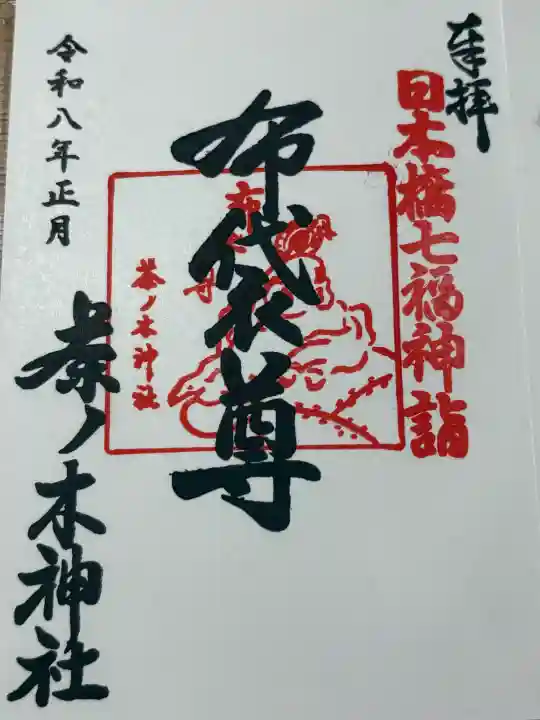 奉拝
日本橋七福神詣
布袋尊
布
尊
茶ノ木神社
令和八年正月
茶ノ木神社